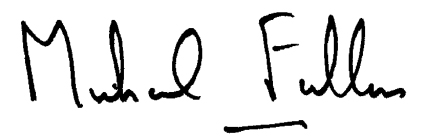 Michael Fuller